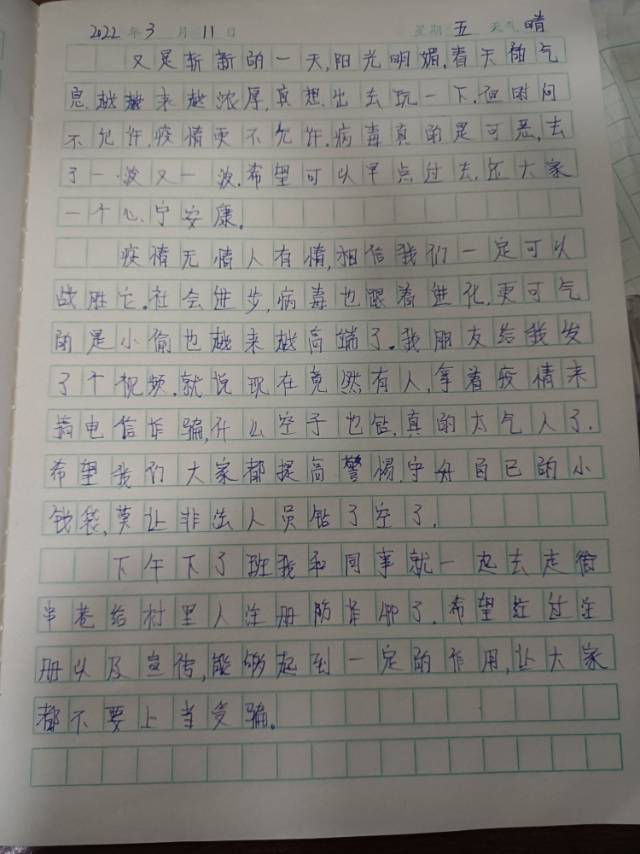 2022年3月11日 星期五 天气晴
又是崭新的一天,阳光明媚,春天的气
息越越来越浓厚,真想出去玩一下,但时间
不允许,疫情更不允许.病毒真的是可恶,去
了一波又一波,希望可以早点过去,还大家
一个心宁安康。
疫情无情人有情,相信我们一定可以
战胜它.社会进步,病毒也跟着进化,更可气
的是小偷也越来越高端了。我朋友给我发
了个视频,就说现在竟然有人,拿着疫情来
搞电信诈骗,什么空子也钻,真的太气人了.
希望我们大家都提高警惕,守好自已的小
钱袋,莫让非法人员钻了空了.
下午下了班我和同事就一起去走街
串巷给村里人注册防诈那了.希望经过注
册以及宣传,能够起到一定的作用,让大家
都不要上当受骗。